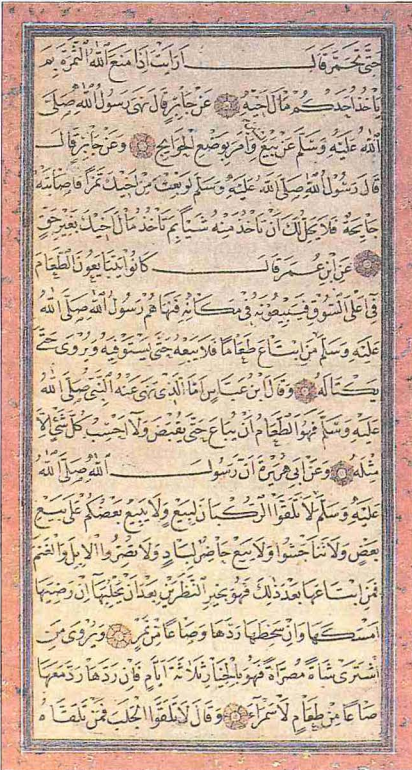 حتى تحمر قال ارايت اذا منع الله الثمرة بم
ياخذ احدكم مال اخيه عن جابر قال نهى رسول الله صلى
الله عليه وسلم عن بيع وأمر بوضع الجوايح وعن جابر قال
قال رسول الله صلى الله عليه وسلم لو بعت من اخيك ثمرا فاصابته
جايحة فلا يحل لك أن تاخذ منه شيأ بم تاخذ مال اخيك بغير حق
عن ابن عمر قال كانوا يتبايعون الطعام
في اعلى السوق فيبيعونه في مكانه فنهاهم رسول الله صلى الله
عليه وسلم من ابتاع طعاما فلا يبعه حتى يستوفيه ويروى حتى
يكتاله وقال ابن عباس اما الذي نهى عنه النبي صلى الله
عليه وسلم فهو الطعام أن يباع حتى يقبض ولا احسب كل شيء الا
مثله وعن ابي هريرة ان رسول الله صلى الله
عليه وسلم لا تلقوا الركبان لبيع ولا يبيع بعضكم على بيع
بعض ولا تناجشوا ولا يبيع حاضر لباد ولا تصروا الابل والغنم
فمن ابتاعها بعد ذلك فهو بخير النظرين بعد أن يحلبها ان رضيها
امسكها وان سخطها ردها وصاعا من تمر ويروى من
اشترى شاة مصراة فهو بالخيار ثلاثة ايام فان ردها رد معها
صاعا من طعام لا سمراء وقال لا تلقوا الجلب فمن تلقاه